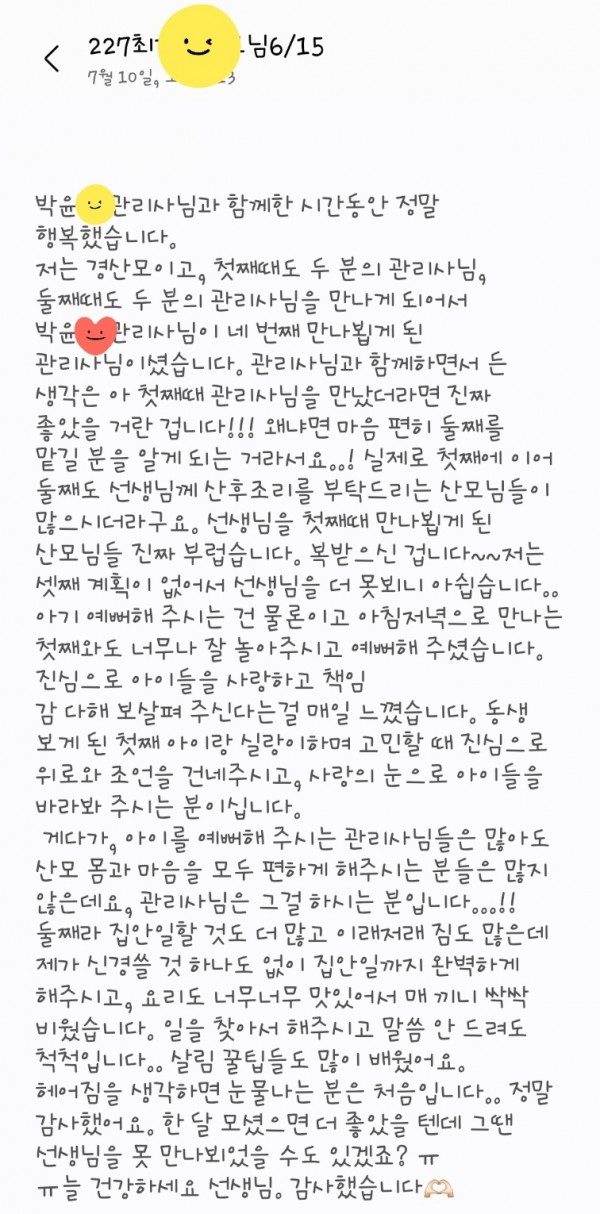 227최 님6/15
7월 10일,
박윤 관리사님과 함께한 시간동안 정말
행복했습니다.
저는 경산모이고, 첫째때도 두 분의 관리사님,
둘째때도 두 분의 관리사님을 만나게 되어서
박윤 관리사님이 네 번째 만나뵙게 된
관리사님이셨습니다. 관리사님과 함께하면서 든
생각은 아 첫째때 관리사님을 만났더라면 진짜
좋았을 거란 겁니다!!! 왜냐면 마음 편히 둘째를
맡길 분을 알게 되는 거라서요..! 실제로 첫째에 이어
둘째도 선생님께 산후조리를 부탁드리는 산모님들이
많으시더라구요. 선생님을 첫째때 만나뵙게 된
산모님들 진짜 부럽습니다. 복받으신 겁니다~~저는
셋째 계획이 없어서 선생님을 더 못뵈니 아쉽습니다..
아기 예뻐해 주시는 건 물론이고 아침저녁으로 만나는
첫째와도 너무나 잘 놀아주시고 예뻐해 주셨습니다.
진심으로 아이들을 사랑하고 책임
감 다해 보살펴 주신다는걸 매일 느꼈습니다. 동생
보게 된 첫째 아이랑 실랑이하며 고민할 때 진심으로
위로와 조언을 건네주시고, 사랑의 눈으로 아이들을
바라봐 주시는 분이십니다.
게다가, 아이를 예뻐해 주시는 관리사님들은 많아도
산모 몸과 마음을 모두 편하게 해주시는 분들은 많지
않은데요, 관리사님은 그걸 하시는 분입니다...!!
둘째라 집안일할 것도 더 많고 이래저래 짐도 많은데
제가 신경쓸 것 하나도 없이 집안일까지 완벽하게
해주시고, 요리도 너무너무 맛있어서 매 끼니 싹싹
비웠습니다. 일을 찾아서 해주시고 말씀 안 드려도
척척입니다.. 살림 꿀팁들도 많이 배웠어요.
헤어짐을 생각하면 눈물나는 분은 처음입니다.. 정말
감사했어요. 한 달 모셨으면 더 좋았을 텐데 그땐
선생님을 못 만나뵈었을 수도 있겠죠? ㅠ
ㅠ늘 건강하세요 선생님. 감사했습니다🫶🏻